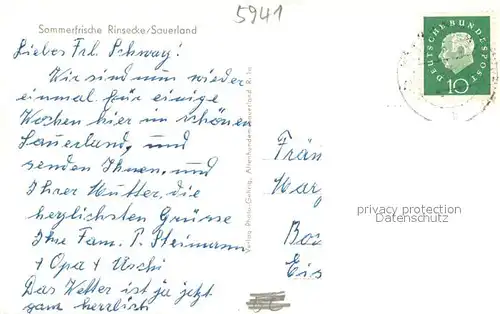 5941
Sommerfrische Rinsecke/Sauerland
Liebes Frl. Schway!
Wir sind nun wieder
einmal für einige
Wochen hier im schönen
Sauerland, und
senden Ihnen, und
Ihrer Mutter, die
herzlichsten Grüsse
Ihre Fam. P. Steimann
+ Opa + Uschi
Das Wetter ist ja jetzt
ganz herrlich
Verlag Photo-Gehrig, Altenhundem-Sauerland
DEUTSCHE BUNDESPOST
10
Frän
Mar
Bo
Eis
privacy protection
Datenschutz